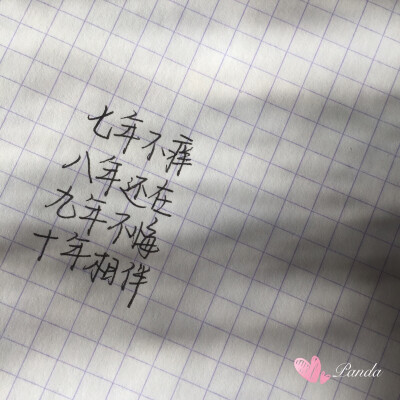 七年不痒
八年还在
九年不悔
十年相伴
Panda